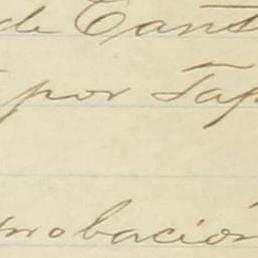 de Cañ
por Tap
probación